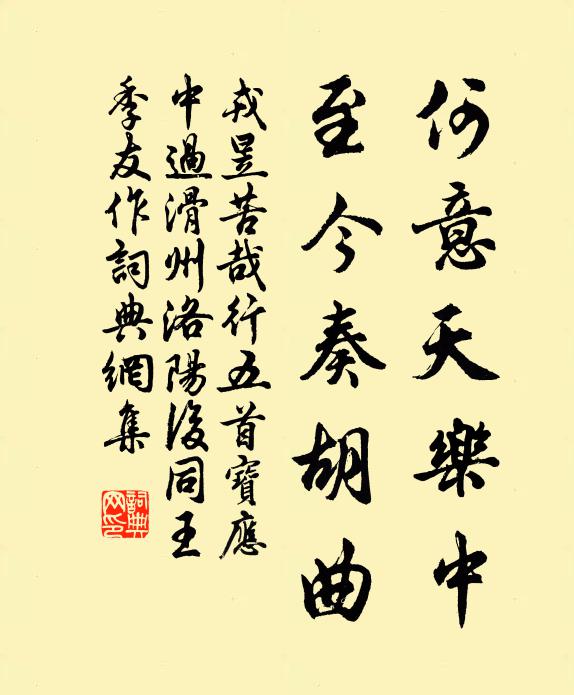 何意天樂中
至今奏胡曲
戎昱苦哉行五首寶應
中過滑州洛陽後同王
季友作詞典網集
詞典
网印